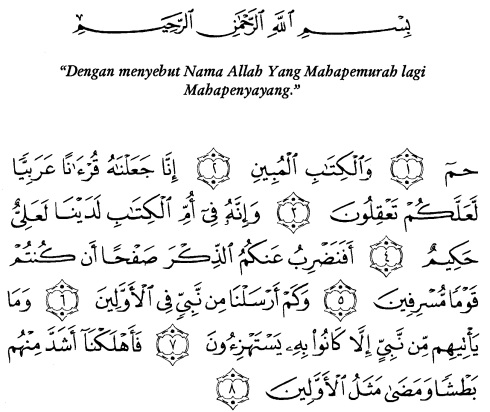 بِسْمِ اللَّهِ الرَّحْمَٰنِ الرَّحِيمِ
“Dengan menyebut Nama Allah Yang Mahapemurah lagi
Mahapenyayang.”
حمٓ ١ وَالْكِتَابِ الْمُبِينِ ٢ إِنَّا جَعَلْنَاهُ قُرْءَانًا عَرَبِيًّا
لَّعَلَّكُمْ تَعْقِلُونَ ٣ وَإِنَّهُ فِيٓ أُمِّ الْكِتَابِ لَدَيْنَا لَعَلِيٌّ
حَكِيمٌ ٤ أَفَنَضْرِبُ عَنكُمُ الذِّكْرَ صَفْحًا أَن كُنتُمْ
قَوْمًا مُّسْرِفِينَ ٥ وَكَمْ أَرْسَلْنَا مِن نَّبِيٍّ فِي الْأَوَّلِينَ ٦ وَمَا
يَأْتِيهِم مِّن نَّبِيٍّ إِلَّا كَانُوا بِهِۦ يَسْتَهْزِءُونَ ٧ فَأَهْلَكْنَآ أَشَدَّ مِنْهُم
بَطْشًا وَمَضَىٰ مَثَلُ الْأَوَّلِينَ ٨